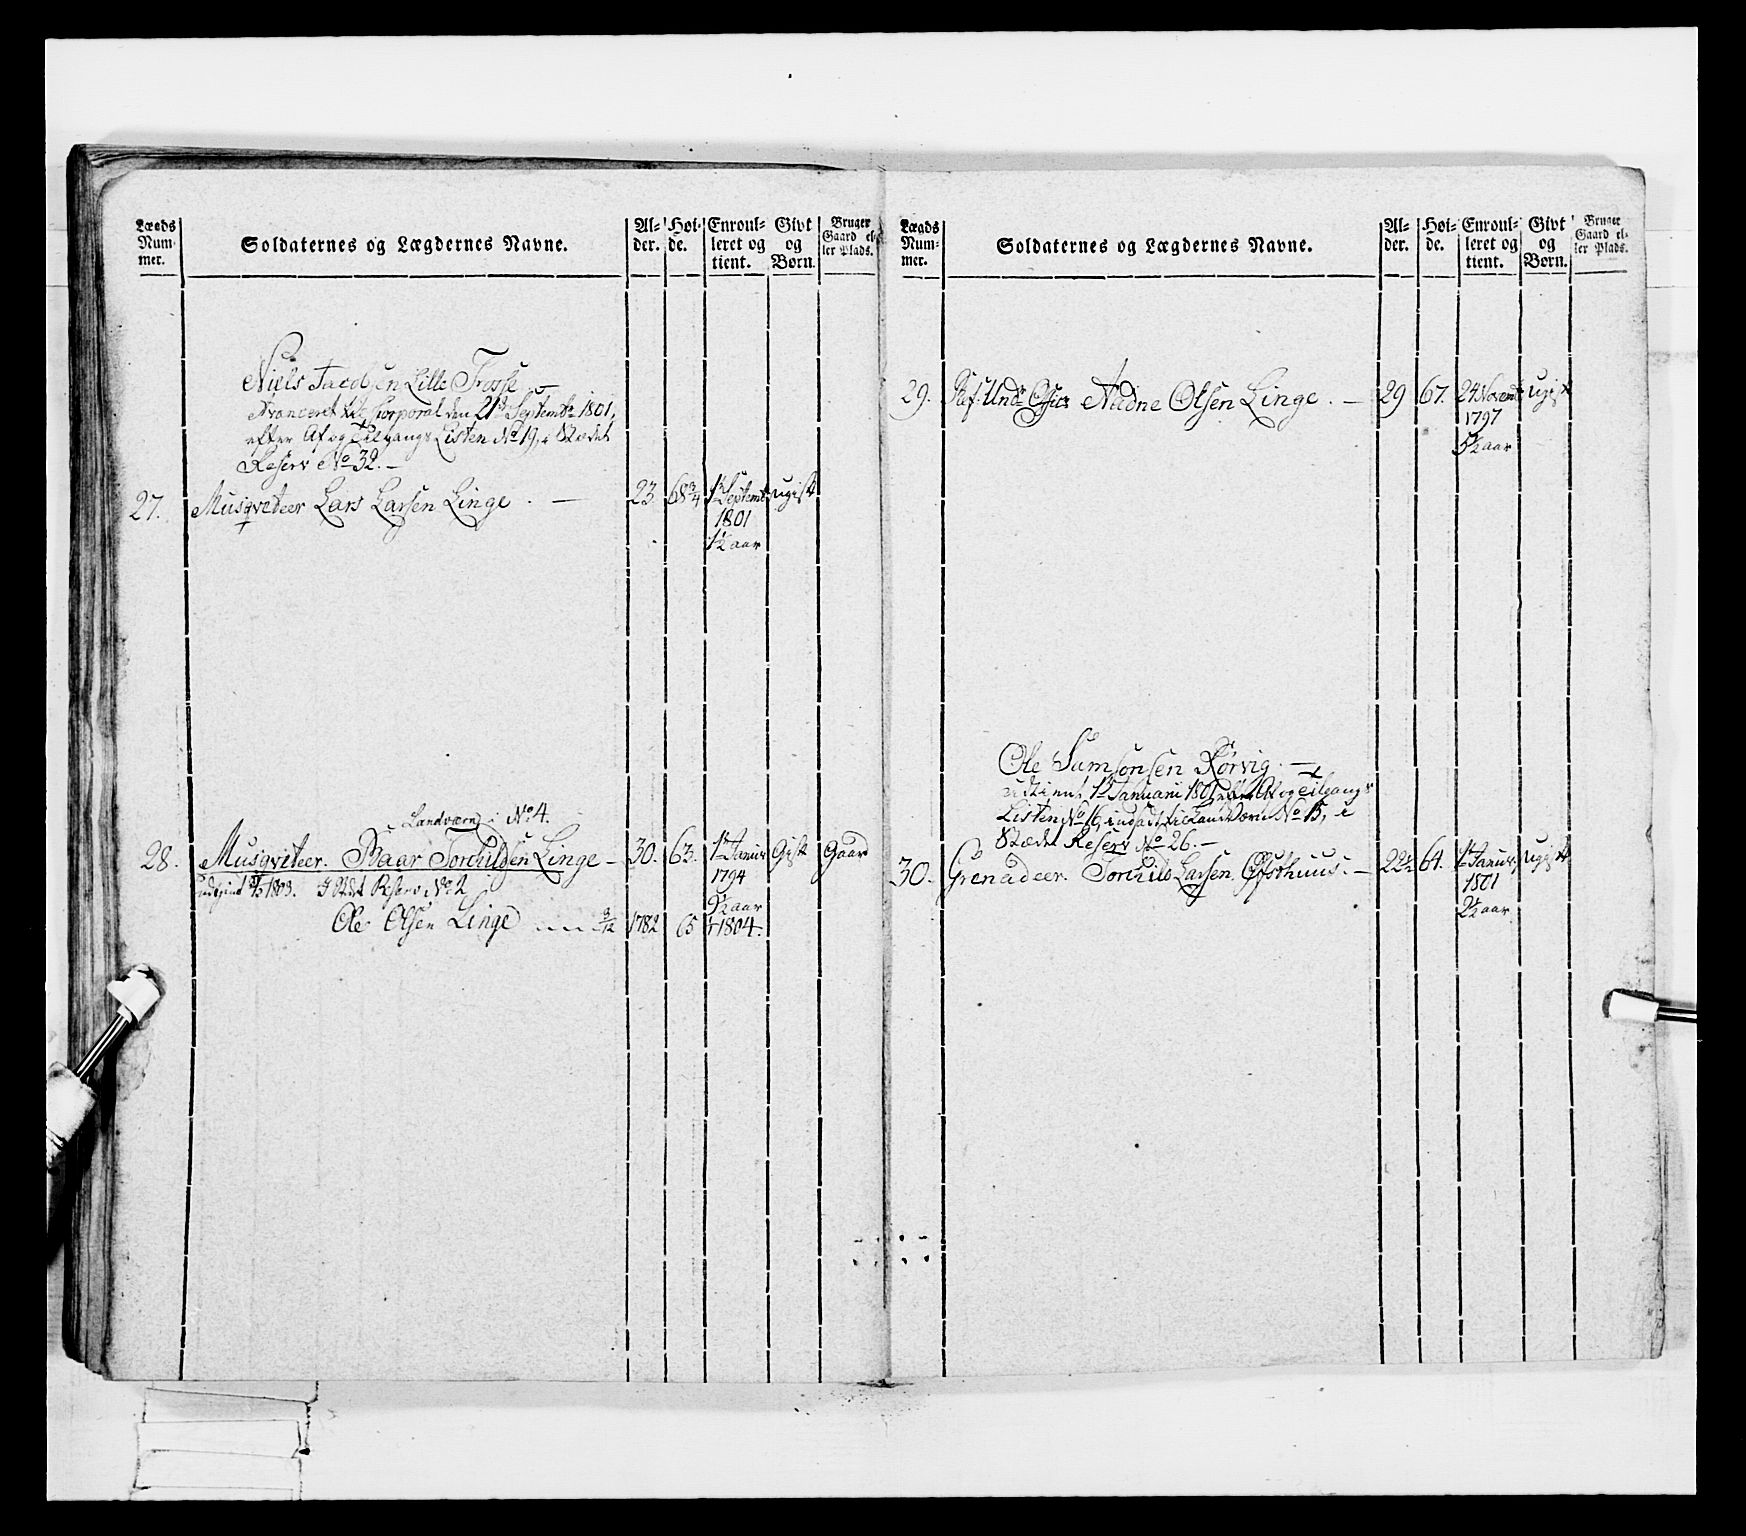 Lægds Nummer.
Soldaternes og Lægdernes Navne.
Alder.
Høide.
Enroulleret og tient.
Givt og Børn.
Bruger Gaard eller Plads.
Niels Jacobsen Lille Fosse
Avanceret til Corporal den 21de Septembr 1801,
efter Af og Tilgangs Listen No 19, i Stædet
Reserv No 32.
27. Musqveteer Lars Larsen Linge. — 23. 68 3/4 1te Septembr ugift
1801
1 1/2 aar
Landværn i No 4.
28. Musqveteer. Baar Torkildsen Linge — 30. 63. 1te Januar Gift Gaard
1794
9 1/2 aar
1803. I Stæd Reserv No 2
Ole Olsen Linge 3/12 1782 65 1/1 1804.
Lægds Nummer.
Soldaternes og Lægdernes Navne.
Alder.
Høide.
Enroulleret og tient.
Givt og Børn.
Bruger Gaard eller Plads.
29. Und Offic Aadne Olsen Linge. — 29 67. 24 Novemb ugift
1797
5 1/2 aar
Ole Samsonsen Rørvig. —
udtient 1te Januari 1801 efter Af og Tilgangs
Listen No 16, indsadt til Land Værn No 15, i
Stædet Reserv No 26. —
30. Grenadeer. Torkild Larsen Opsthuus. — 22 1/2 64. 1te Januar ugift
1801
2 1/2 aar